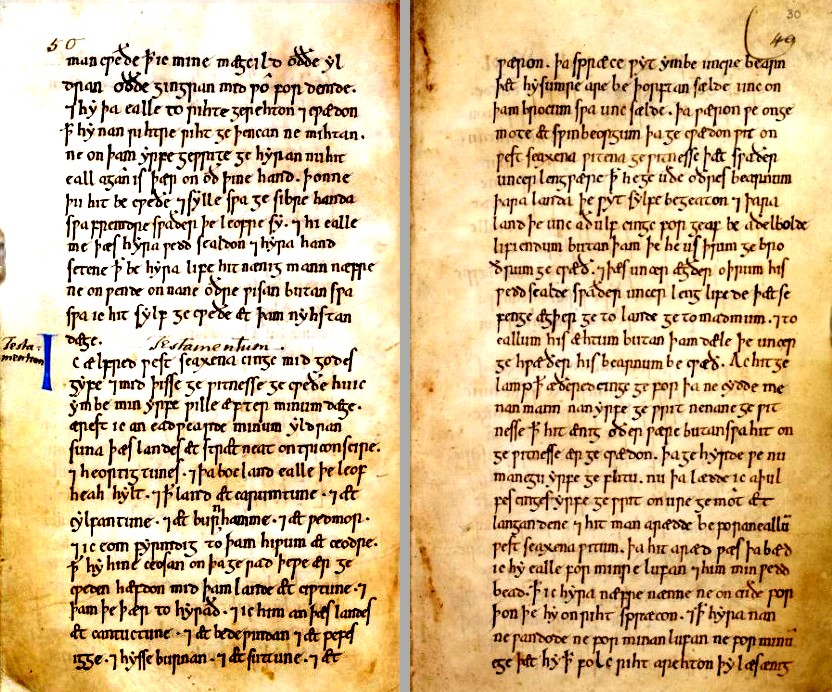 50
man cƿæðe þ̄ ic mine mægcild oððe yl
dran oððe gingran mid ƿo fordemde.
⁊ hy þa ealle to rihte gerehton ⁊ cƿædon
þ̄ hy nan rihtre riht geþencan ne mihtan.
ne on þam yrfe geƿrite gehyran nu hit
eall agan is þær on oð þine hand. þonne
þu hit becƿeðe ⁊ sylle sƿa gesibre handa
sƿa fremdre sƿaðer þe leofre sy. ⁊ hi ealle
me þæs hyra ƿedd sealdon ⁊ hyra hand
setene þ̄ be hyra life hit nænig mann næfre
ne onƿende on nane oðre ƿisan butan sƿa
sƿa ic hit sylf gecƿeðe æt þam nyhstan
dæge. Testamentum.
Testamentum
Ic ælfred ƿestseaxena cinge mid godes
gyfe ⁊ mid þisse geƿitnesse gecƿeðe hu ic
ymbe min yrfe ƿille æfter minum dæge.
ærest ic an eadƿearde minum yldran
suna þæs landes æt strætneat on triconscire.
⁊ heortigtunes. ⁊ þa bocland ealle þe leof
heah hylt. ⁊ þ̄ land æt carumtune. ⁊ æt
cylfantune. ⁊ æt burnhamme. ⁊ æt ƿedmor.
⁊ ic eom fyrmdig to þam hiƿum æt ceodre.
þ̄ hy hine ceosan on þa gerad þe ƿe ær ge
cƿeden hæfdon mid þam lande æt ciƿtune. ⁊
þam þe þær to hyrað. ⁊ ic him an þæs landes
æt cantuctune. ⁊ æt bedeƿindan ⁊ æt pefes
igge. ⁊ hysseburnan. ⁊ æt suttune. ⁊ æt
30
49
ƿæron. þa spræce ƿyt ymbe uncre bearn
þæt hy sumre are beþorftan sælde unc on
þam brocum sƿa unc sælde. þa ƿæron ƿe on ge
mote æt sƿinbeorgum þa gecƿædon ƿit on
ƿestseaxena ƿitena geƿitnesse þæt sƿaðer
uncer leng ƿære þ̄ he geuðe oðres bearnum
þara landa þe ƿyt sylfe begeaton ⁊ þara
landa þe unc aðulf cinge forgeaf be aðelbolde
lifiendum butan þam þe he us þrim gebro
ðrum gecƿæð. ⁊ þæs uncer ægðer oþrum his
ƿedd sealde sƿaðer uncer leng lifede þæt se
fenge ægþer ge to lande ge to madmum. ⁊ to
eallum his æhtum butan þam dæle þe uncer
gehƿæðer his bearnum becƿæð. Ac hit ge
lamp þ̄ æðered cinge gefor þa ne cydde me
nan mann nan yrfegeƿrit ne nane geƿit
nesse þ̄ hit ænig oðer ƿære butan sƿa hit on
geƿitnesse ær gecƿædon. þa gehyrde ƿe nu
manegu yrfegeflitu. nu þa lædde ic aþul
fes cinges yrfegeƿrit on ure gemot æt
langandene ⁊ hit man arædde beforan eallū
ƿestseaxena ƿitum. þa hit aræd ƿæs þa bæd
ic hy ealle for minre lufan ⁊ him min ƿedd
bead. þ̄ ic hyra næfre nænne ne oncuðe for
þon þe hy on riht spræcon. ⁊ þ̄ hyra nan
ne ƿandode ne for minan lufan ne for minū
ege þæt hy þ̄ folcriht arehton þy læs ænig